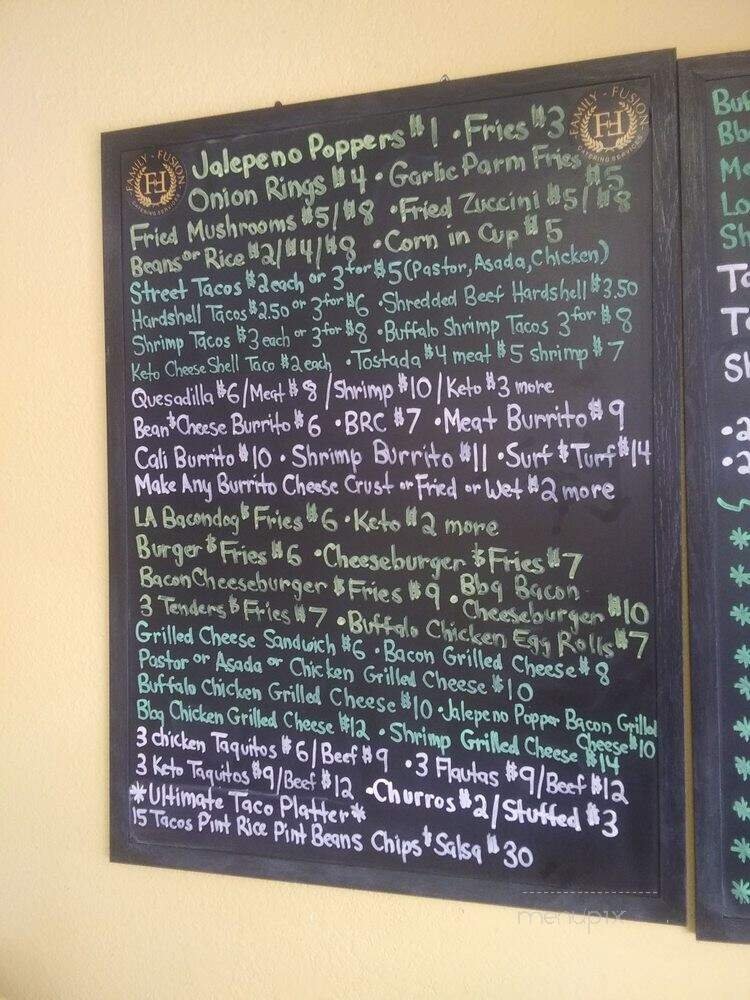 FAMILY - FUSION
FF
CATERING SERVICES
FAMILY - FUSION
FF
CATERING SERVICES
Jalepeno Poppers $1 • Fries $3
Onion Rings $4 • Garlic Parm Fries $5
Fried Mushrooms $5/$8 • Fried Zuccini $5/$8
Beans or Rice $2/$4/$8 • Corn in Cup $5
Street Tacos $2 each or 3 for $5 (Pastor, Asada, Chicken)
Hardshell Tacos $2.50 or 3 for $6 • Shredded Beef Hardshell $3.50
Shrimp Tacos $3 each or 3 for $8 • Buffalo Shrimp Tacos 3 for $8
Keto Cheese Shell Taco $2 each • Tostada $4 meat $5 shrimp $7
Quesadilla $6/Meat $8/Shrimp $10/Keto $3 more
Bean & Cheese Burrito $6 • BRC $7 • Meat Burrito $9
Cali Burrito $10 • Shrimp Burrito $11 • Surf & Turf $14
Make Any Burrito Cheese Crust or Fried or Wet $2 more
LA Bacondog & Fries $6 • Keto $2 more
Burger & Fries $6 • Cheeseburger & Fries $7
Bacon Cheeseburger & Fries $9 • Bbq Bacon
Cheeseburger $10
3 Tenders & Fries $7 • Buffalo Chicken Egg Rolls $7
Grilled Cheese Sandwich $6 • Bacon Grilled Cheese $8
Pastor or Asada or Chicken Grilled Cheese $10
Buffalo Chicken Grilled Cheese $10 • Jalepeno Popper Bacon Grilled
Cheese $10
Bbq Chicken Grilled Cheese $12 • Shrimp Grilled Cheese $14
3 chicken Taquitos $6/Beef $9 • 3 Flautas $9/Beef $12
3 Keto Taquitos $9/Beef $12 • Churros $2/Stuffed $3
*Ultimate Taco Platter*
15 Tacos Pint Rice Pint Beans Chips & Salsa $30
menupix